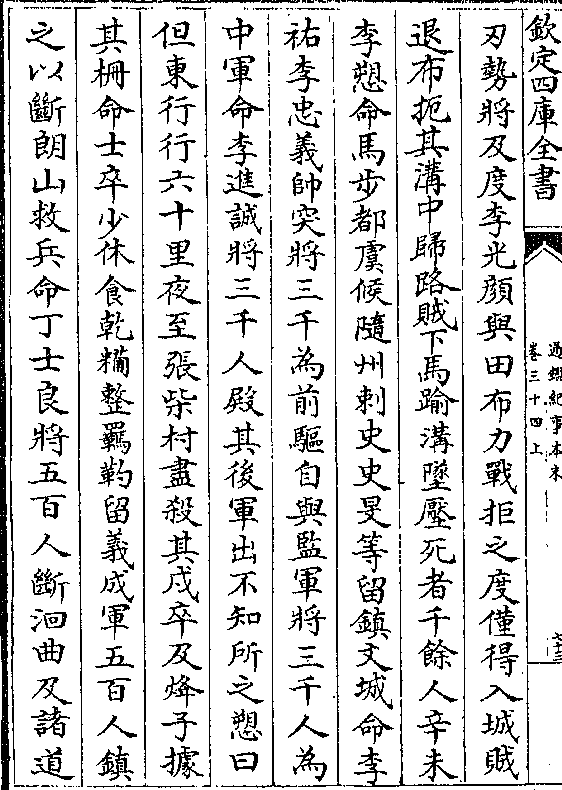 欽定四庫全書
通鑑紀事本末
卷三十四上
刃勢將及度李光顔與田布力戰拒之度僅得入城賊
退布扼其溝中歸路賊下馬踰溝墜壓死者千餘人辛未
李愬命馬步都虞候隨州刺史史旻等留鎮文城命李
祐李忠義帥突將三千為前驅自與監軍將三千人為
中軍命李進誠將三千人殿其後軍出不知所之愬曰
但東行行六十里夜至張柴村盡殺其戍卒及烽子據
其柵命士卒少休食乾糒整羈靮留義成軍五百人鎮
之以斷朗山救兵命丁士良將五百人斷洄曲及諸道